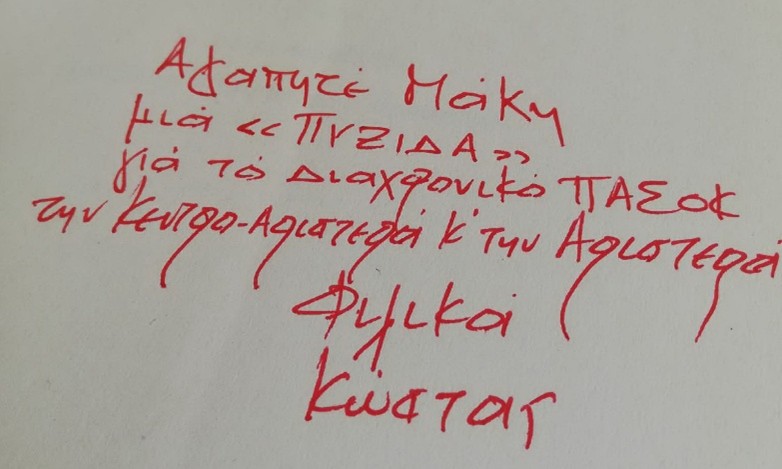 Αγαπητέ Μάκη
μιά «ΠΥΞΙΔΑ»
γιά τό Διαχρονικό ΠΑΣΟΚ
την Κεντρο-Αριστερά κ' την Αριστερά
Φιλικά
Κώστας